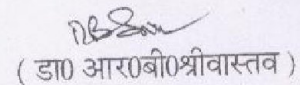 ( डा0 आर0बी0श्रीवास्तव )